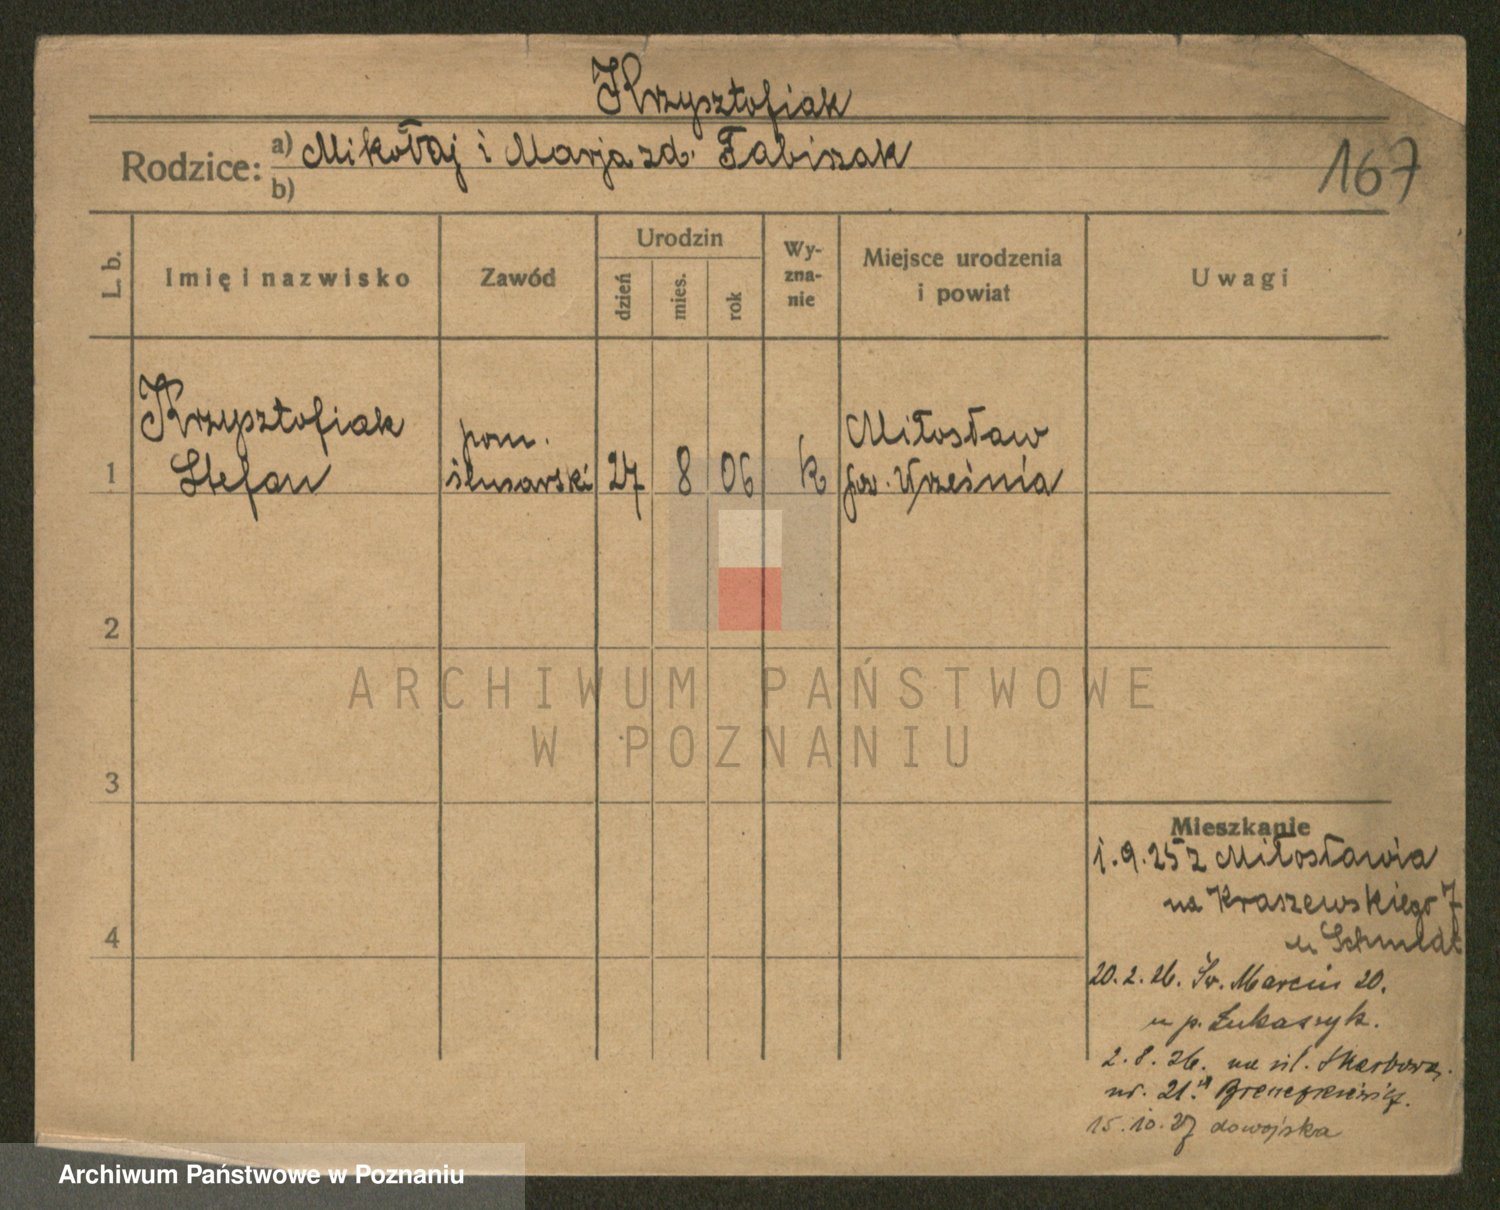 Krzysztofiak
Rodzice: a) Mikołaj i Marja zd. Fabiszak
b)
167
L. b.
Imię i nazwisko
Zawód
Urodzin
dzień
mies.
rok
Wy-
zna-
nie
Miejsce urodzenia
i powiat
Uwagi
1
Krzysztofiak
Stefan
pom.
ślusarski
27
8
06
k
Miłosław
pow. Września
2
3
4
Mieszkanie
1.9.25 z Miłosławia
na Kraszewskiego 7
u Schmidt
20.2.26. Św. Marcin 20.
u p. Łukaszyk.
2.8.26. na ul. Skarbową
nr. 21.
15.10.27 do wojska
ARCHIWUM PAŃSTWOWE
W POZNANIU
Archiwum Państwowe w Poznaniu